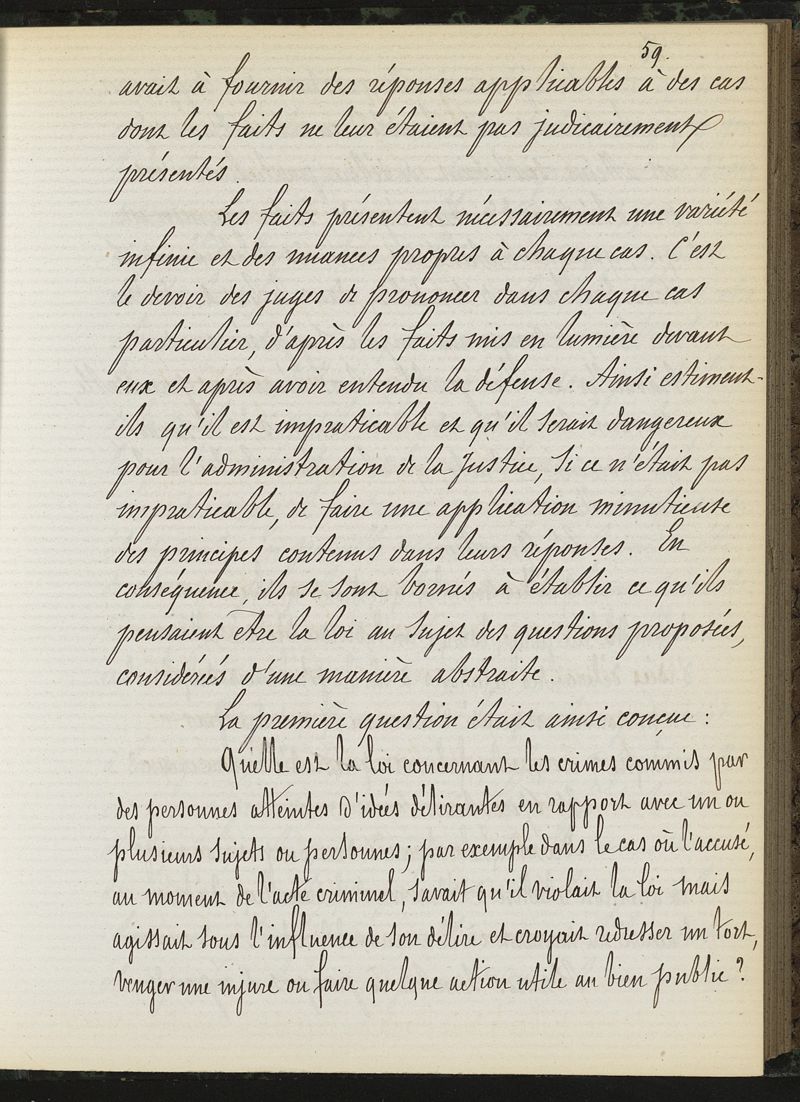 59.
avait à fournir des réponses applicables à des cas
dont les faits ne leur étaient pas judicairement
présentés.
Les faits présentent nécessairement une variété
infinie et des nuances propres à chaque cas. C'est
le devoir des juges de prononcer dans chaque cas
particulier, d'après les faits mis en lumière devant
eux et après avoir entendu la défense. Ainsi estiment-
ils qu'il est impraticable et qu'il serait dangereux
pour l'administration de la Justice, si ce n'était pas
impraticable, de faire une application minutieuse
des principes contenus dans leurs réponses. En
conséquence, ils se sont bornés à établir ce qu'ils
pensaient être la loi au sujet des questions proposées,
considérées d'une manière abstraite.
La première question était ainsi conçue :
Quelle est la loi concernant les crimes commis par
des personnes atteintes d'idées délirantes en rapport avec un ou
plusieurs sujets ou personnes ; par exemple dans le cas où l'accusé,
au moment de l'acte criminel, savait qu'il violait la loi mais
agissait sous l'influence de son délire et croyait redresser un tort,
venger une injure ou faire quelque action utile au bien public ?